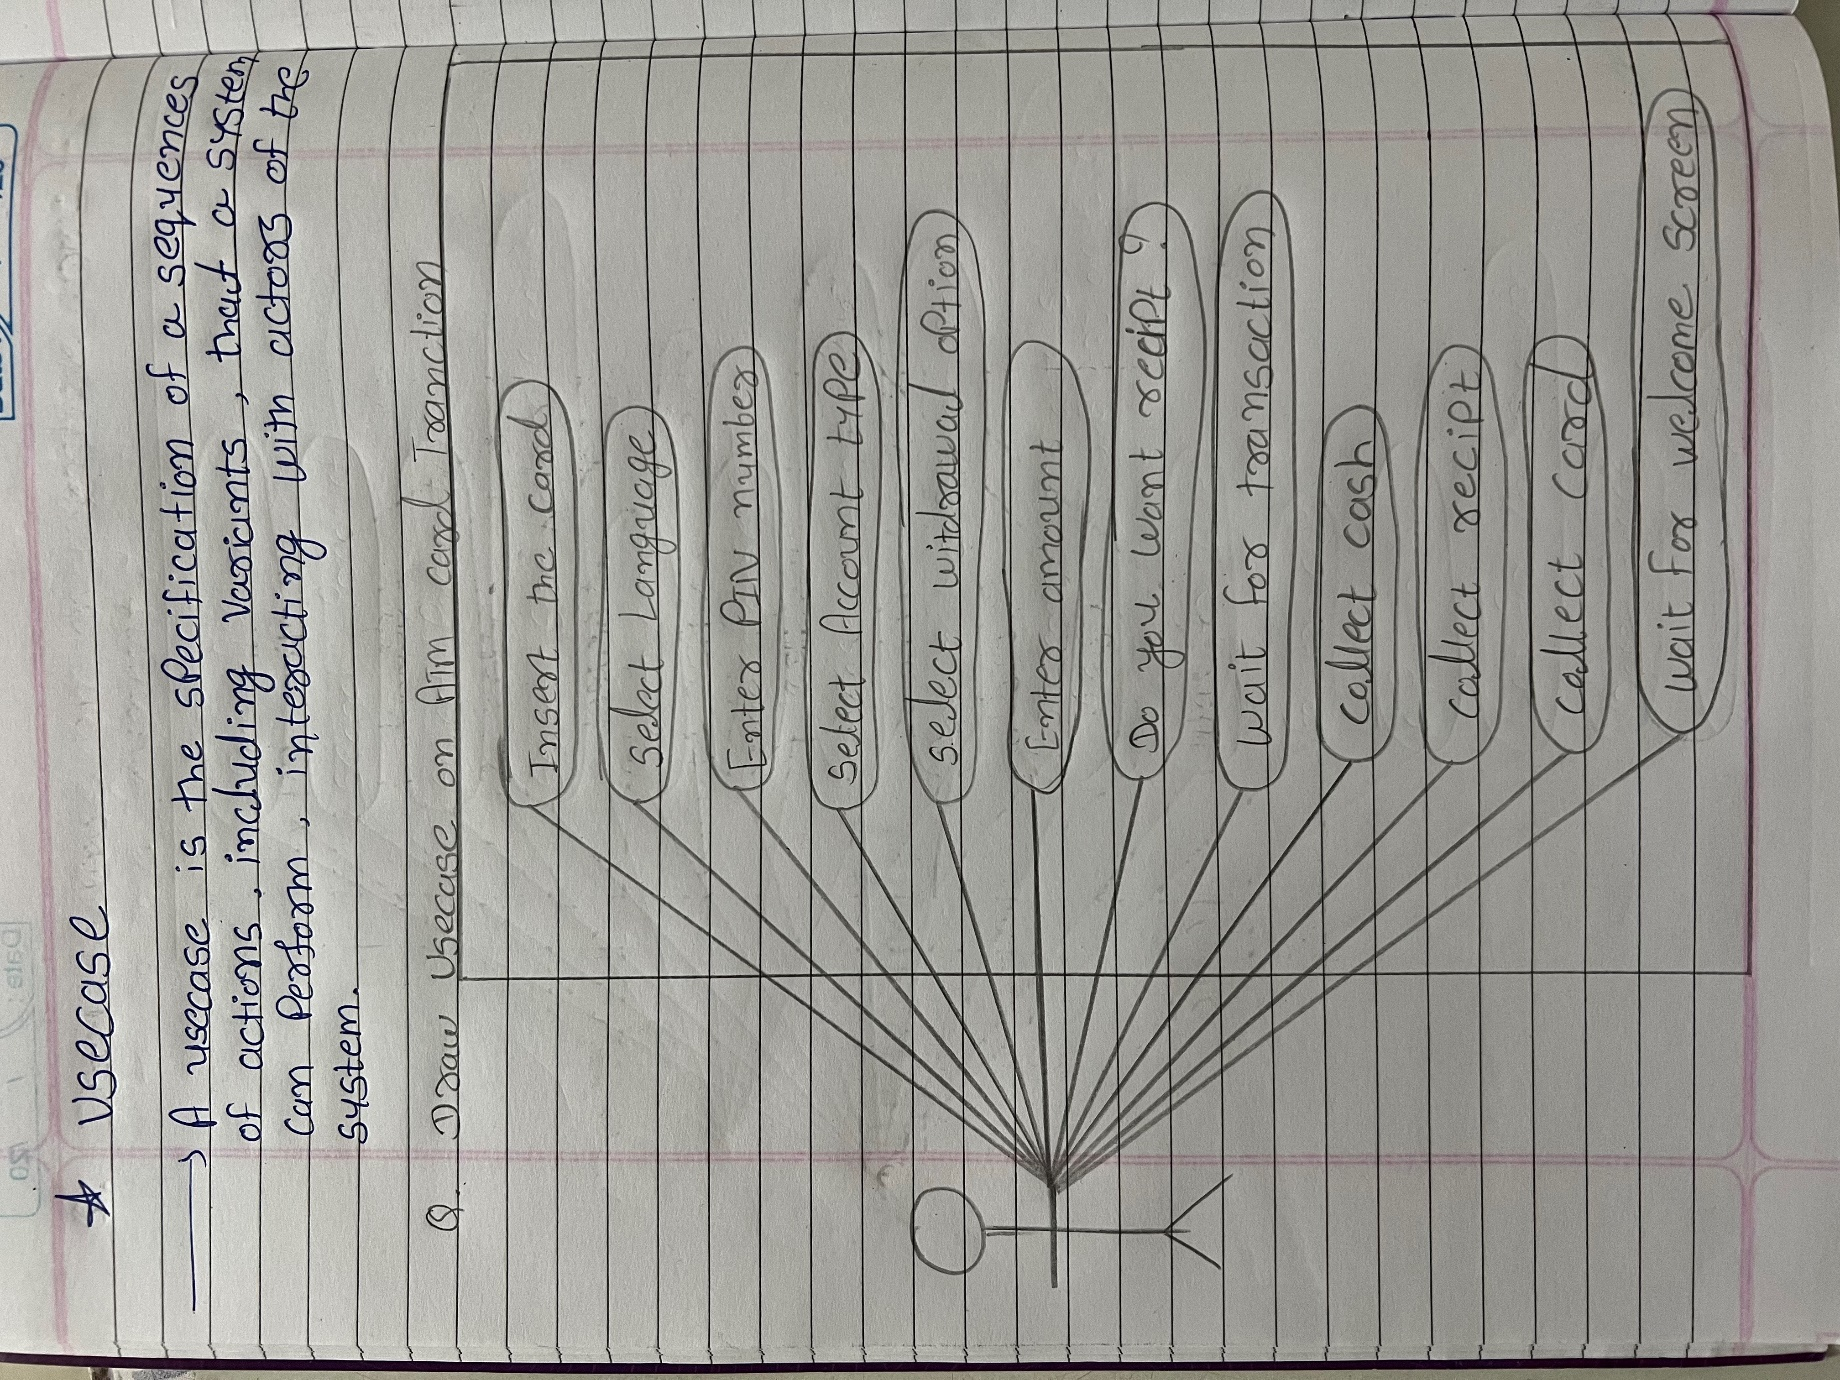 Usecase
A usecase is the specification of a sequences
of actions, including variants, that a system
can perform, interacting with actors of the
system.
Q. Draw usecase on Atm card Tranction
Insert the card
Select Language
Enter PIN number
Select Account type
select witdrawal option
Enter amount
Do you want recipt?
wait for transaction
collect cash
collect recipt
collect card
wait for welcome screen